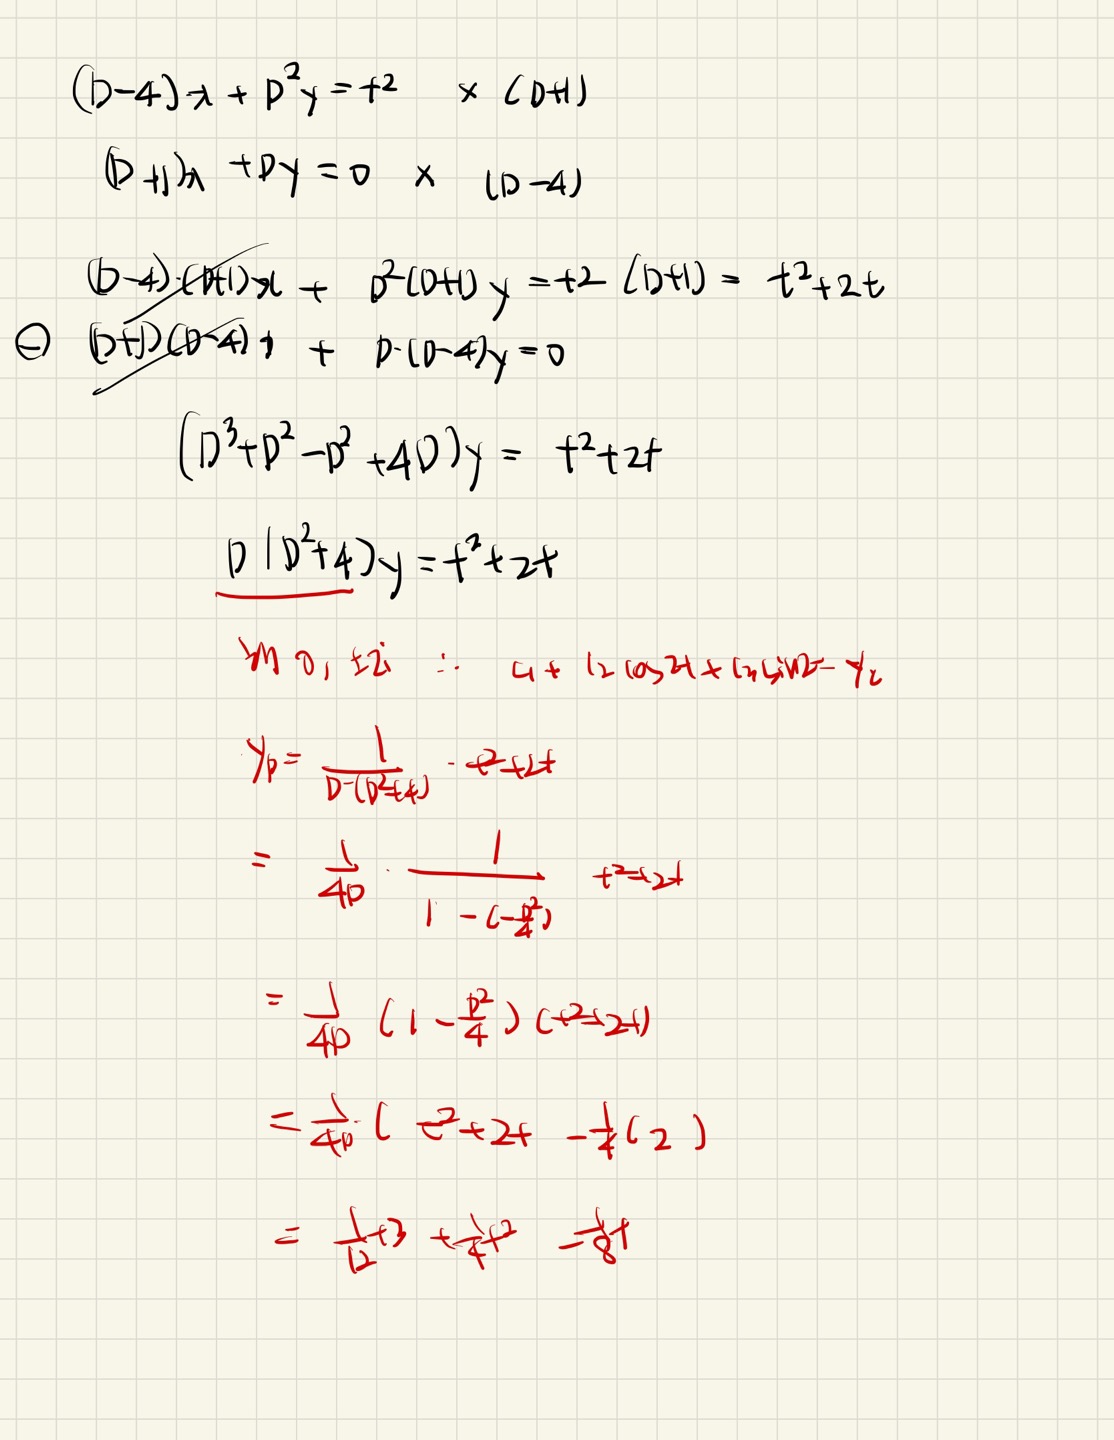 (D-4)x + D²y = t² × (D+1)
(D+1)x + Dy = 0 × (D-4)
(D-4)·(D+1)x + D²(D+1)y = t² (D+1) = t²+2t
⊖ (D+1)(D-4)x + D·(D-4)y = 0
(D³+D²-D²+4D)y = t²+2t
D(D²+4)y = t²+2t
m 0, ±2i ∴ c₁ + c₂ cos2t + c₃ sin2t = y_c
y_p = 1/(D·(D²+4)) · t²+2t
= 1/(4D) · 1/(1-(-D²/4)) t²+2t
= 1/(4D) (1 - D²/4) (t²+2t)
= 1/(4D) · (t²+2t - 1/4(2))
= 1/12 t³ + 1/4 t² - 1/8 t